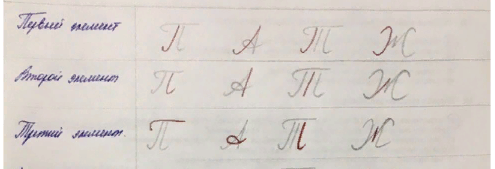 Первый элемент П А Т Ж
Второй элемент П А Т Ж
Третий элемент. П А Т Ж